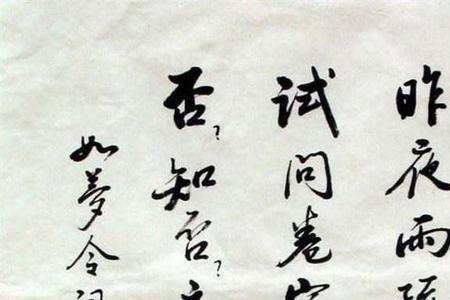 昨夜雨疏
试问卷帘
否?知否?
如梦令词